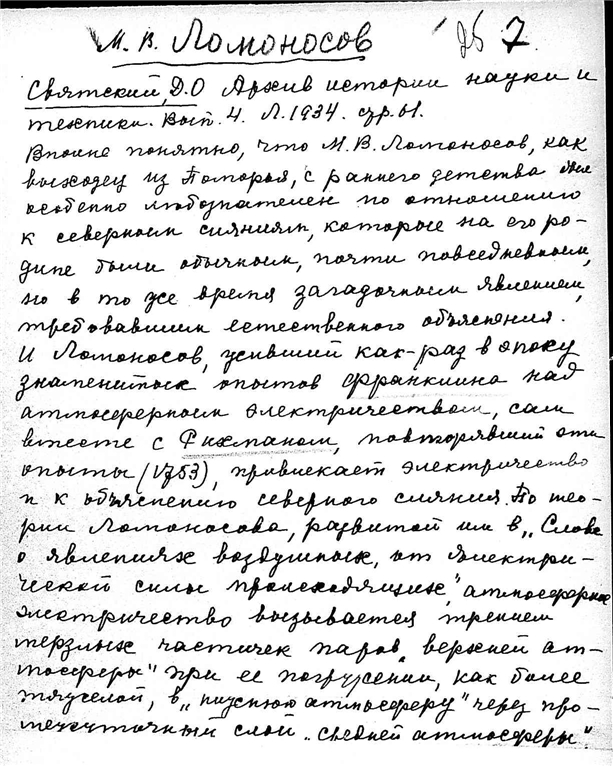 М. В. Ломоносов 7
Святский, Д.О Архив истории науки и
техники. Вып. 4. Л. 1934. стр. 61.
Вполне понятно, что М.В. Ломоносов, как
выходец из Поморья, с раннего детства был
особенно любознателен по отношению
к северным сияниям, которые на его ро-
дине были обычным, почти повседневным,
но в то же время загадочным явлением,
требовавшим естественного объяснения.
И Ломоносов, живший как-раз в эпоху
знаменитых опытов Франклина над
атмосферным электричеством, сам
вместе с Рихманом, повторявший эти
опыты (1753), привлекает электричество
и к объяснению северного сияния. По тео-
рии Ломоносова, развитой им в „Слове
о явлениях воздушных, от электри-
ческой силы происходящих", атмосферное
электричество вызывается трением
мерзлых частичек паров „верхней ат-
мосферы" при ее погружении, как более
тяжелой, в „нижнюю атмосферу" через про-
межуточный слой „средней атмосферы".